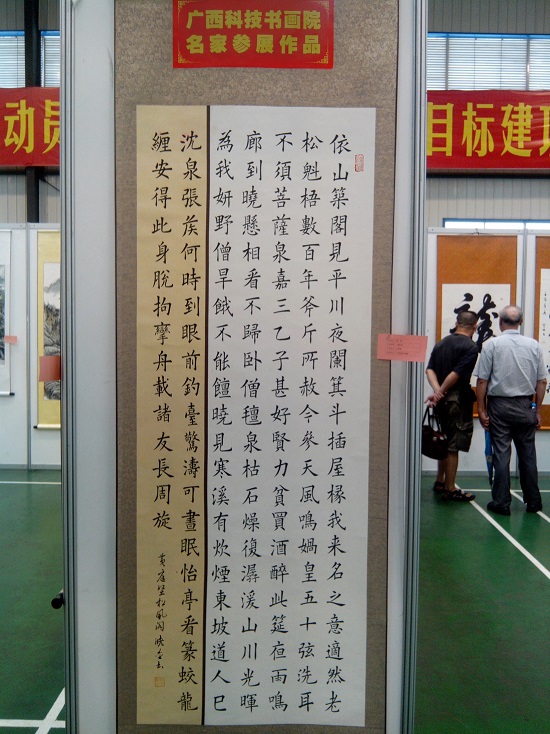 广西科技书画院
名家参展作品
动员
目标建
依山築閣見平川夜闌箕斗插屋椽我来名之意適然老
松魁梧數百年斧斤所赦今參天風鳴媧皇五十弦洗耳
不須菩薩泉嘉三乙子甚好賢力貧買酒醉此筵夜雨鳴
廊到曉懸相看不歸卧僧氊泉枯石燥復潺湲山川光暉
為我妍野僧旱餓不能饘曉見寒溪有炊煙東坡道人已
沈泉張侯何時到眼前釣臺驚濤可晝眠怡亭看篆蛟龍
纏安得此身脫拘攣舟載諸友長周旋
黄庭堅松風閣